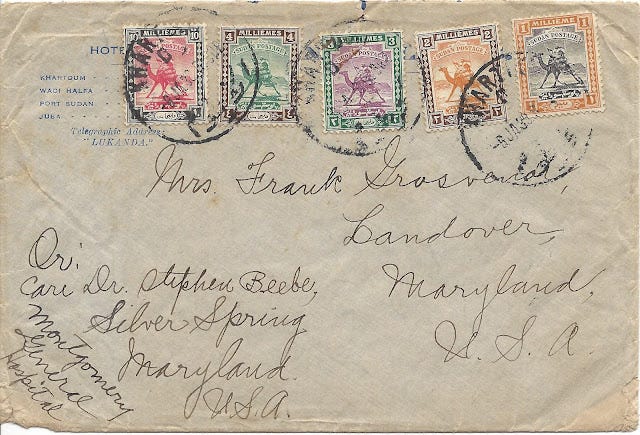 HOTE
KHARTOUM
WADI HALFA
PORT SUDAN
JUBA
Telegraphic Address:
"LUKANDA."
10 MILLIEMES 10
SUDAN POSTAGE
4 MILLIEMES 4
SUDAN POSTAGE
3 MILLIEMES 3
SUDAN POSTAGE
2 MILLIEMES 2
SUDAN POSTAGE
1 MILLIEME 1
SUDAN POSTAGE
Mrs. Frank Grosvenor,
Landover,
Maryland,
U. S. A.
Or:
Care Dr. Stephen Beebe,
Silver Spring
Maryland.
U.S.A.
Montgomery
General
Hospital